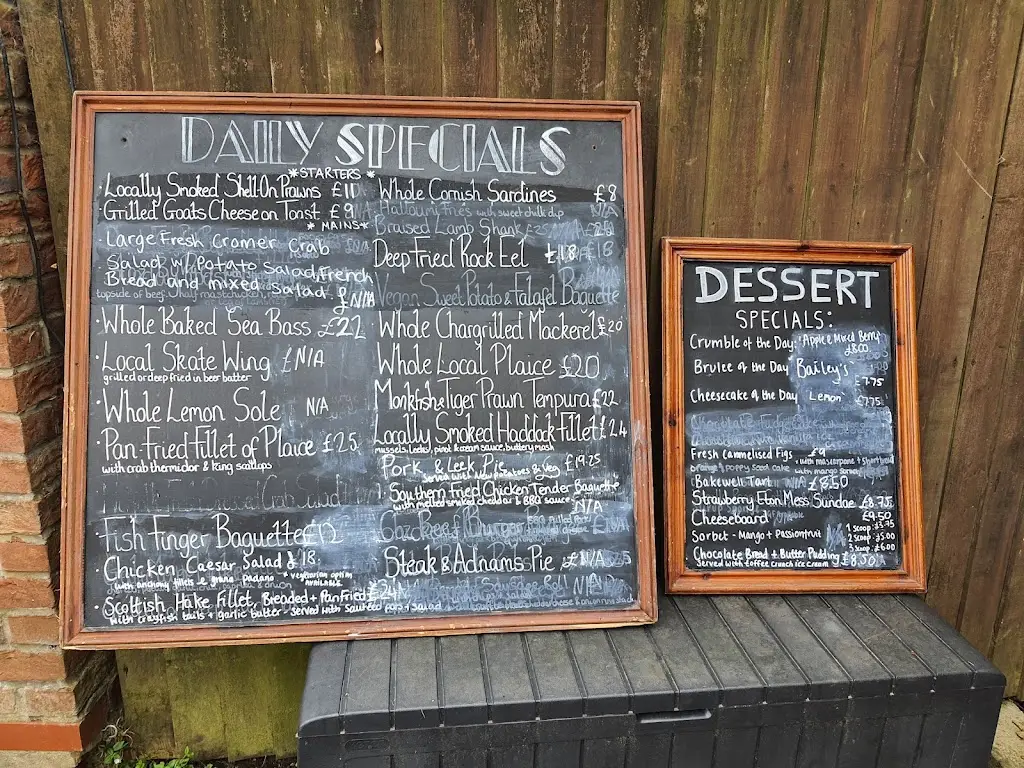 DAILY SPECIALS
*STARTERS*
· Locally Smoked Shell-On Prawns £11
Grilled Goats Cheese on Toast £9
Whole Cornish Sardines £8
Halloumi fries with sweet chilli dip N/A
* MAINS*
· Large Fresh Cromer Crab
Salad w/ Potato Salad, French
Bread and mixed salad. £N/A
· Whole Baked Sea Bass £22
· Local Skate Wing £N/A
grilled or deep fried in beer batter
· Whole Lemon Sole N/A
· Pan-Fried Fillet of Plaice £25
with crab thermidor & king scallops
· Fish Finger Baguette £12
· Chicken Caesar Salad £18.
with anchovy fillets & grana Padano * vegetarian option available
· Scottish Hake Fillet, Breaded + Pan Fried £24
with crayfish tails + garlic butter - served with
Braised Lamb Shank
Deep Fried Rock Eel £18
Vegan Sweet Potato & Falafel Baguette
Whole Chargrilled Mackerel £20
Whole Local Plaice £20
Monkfish & Tiger Prawn Tempura £22
Locally Smoked Haddock Fillet £24
mussels, leeks, pinot & cream sauce, buttery mash
Pork & Leek Pie £19.25
Served with New potatoes & Veg
Southern Fried Chicken Tender Baguette
with melted smoked cheddar & BBQ sauce N/A
Steak & Adnams Pie £N/A
DESSERT
SPECIALS:
Crumble of the Day: "Apple & Mixed Berry"
£8.00
Brulee of the Day Bailey's
£7.75
Cheesecake of the Day "Lemon" £7.75
Fresh Caramelised Figs £9
- with mascarpone + shortbread
orange & poppy seed cake - with mango sorbet
Bakewell Tart N/A £8.50
Strawberry Eton Mess Sundae £8.75
Cheeseboard £9.50
Sorbet - Mango + Passionfruit
1 scoop £3.75
2 scoop £5.00
3 scoop £6.00
Chocolate Bread + Butter Pudding
Served with toffee crunch ice cream £8.50